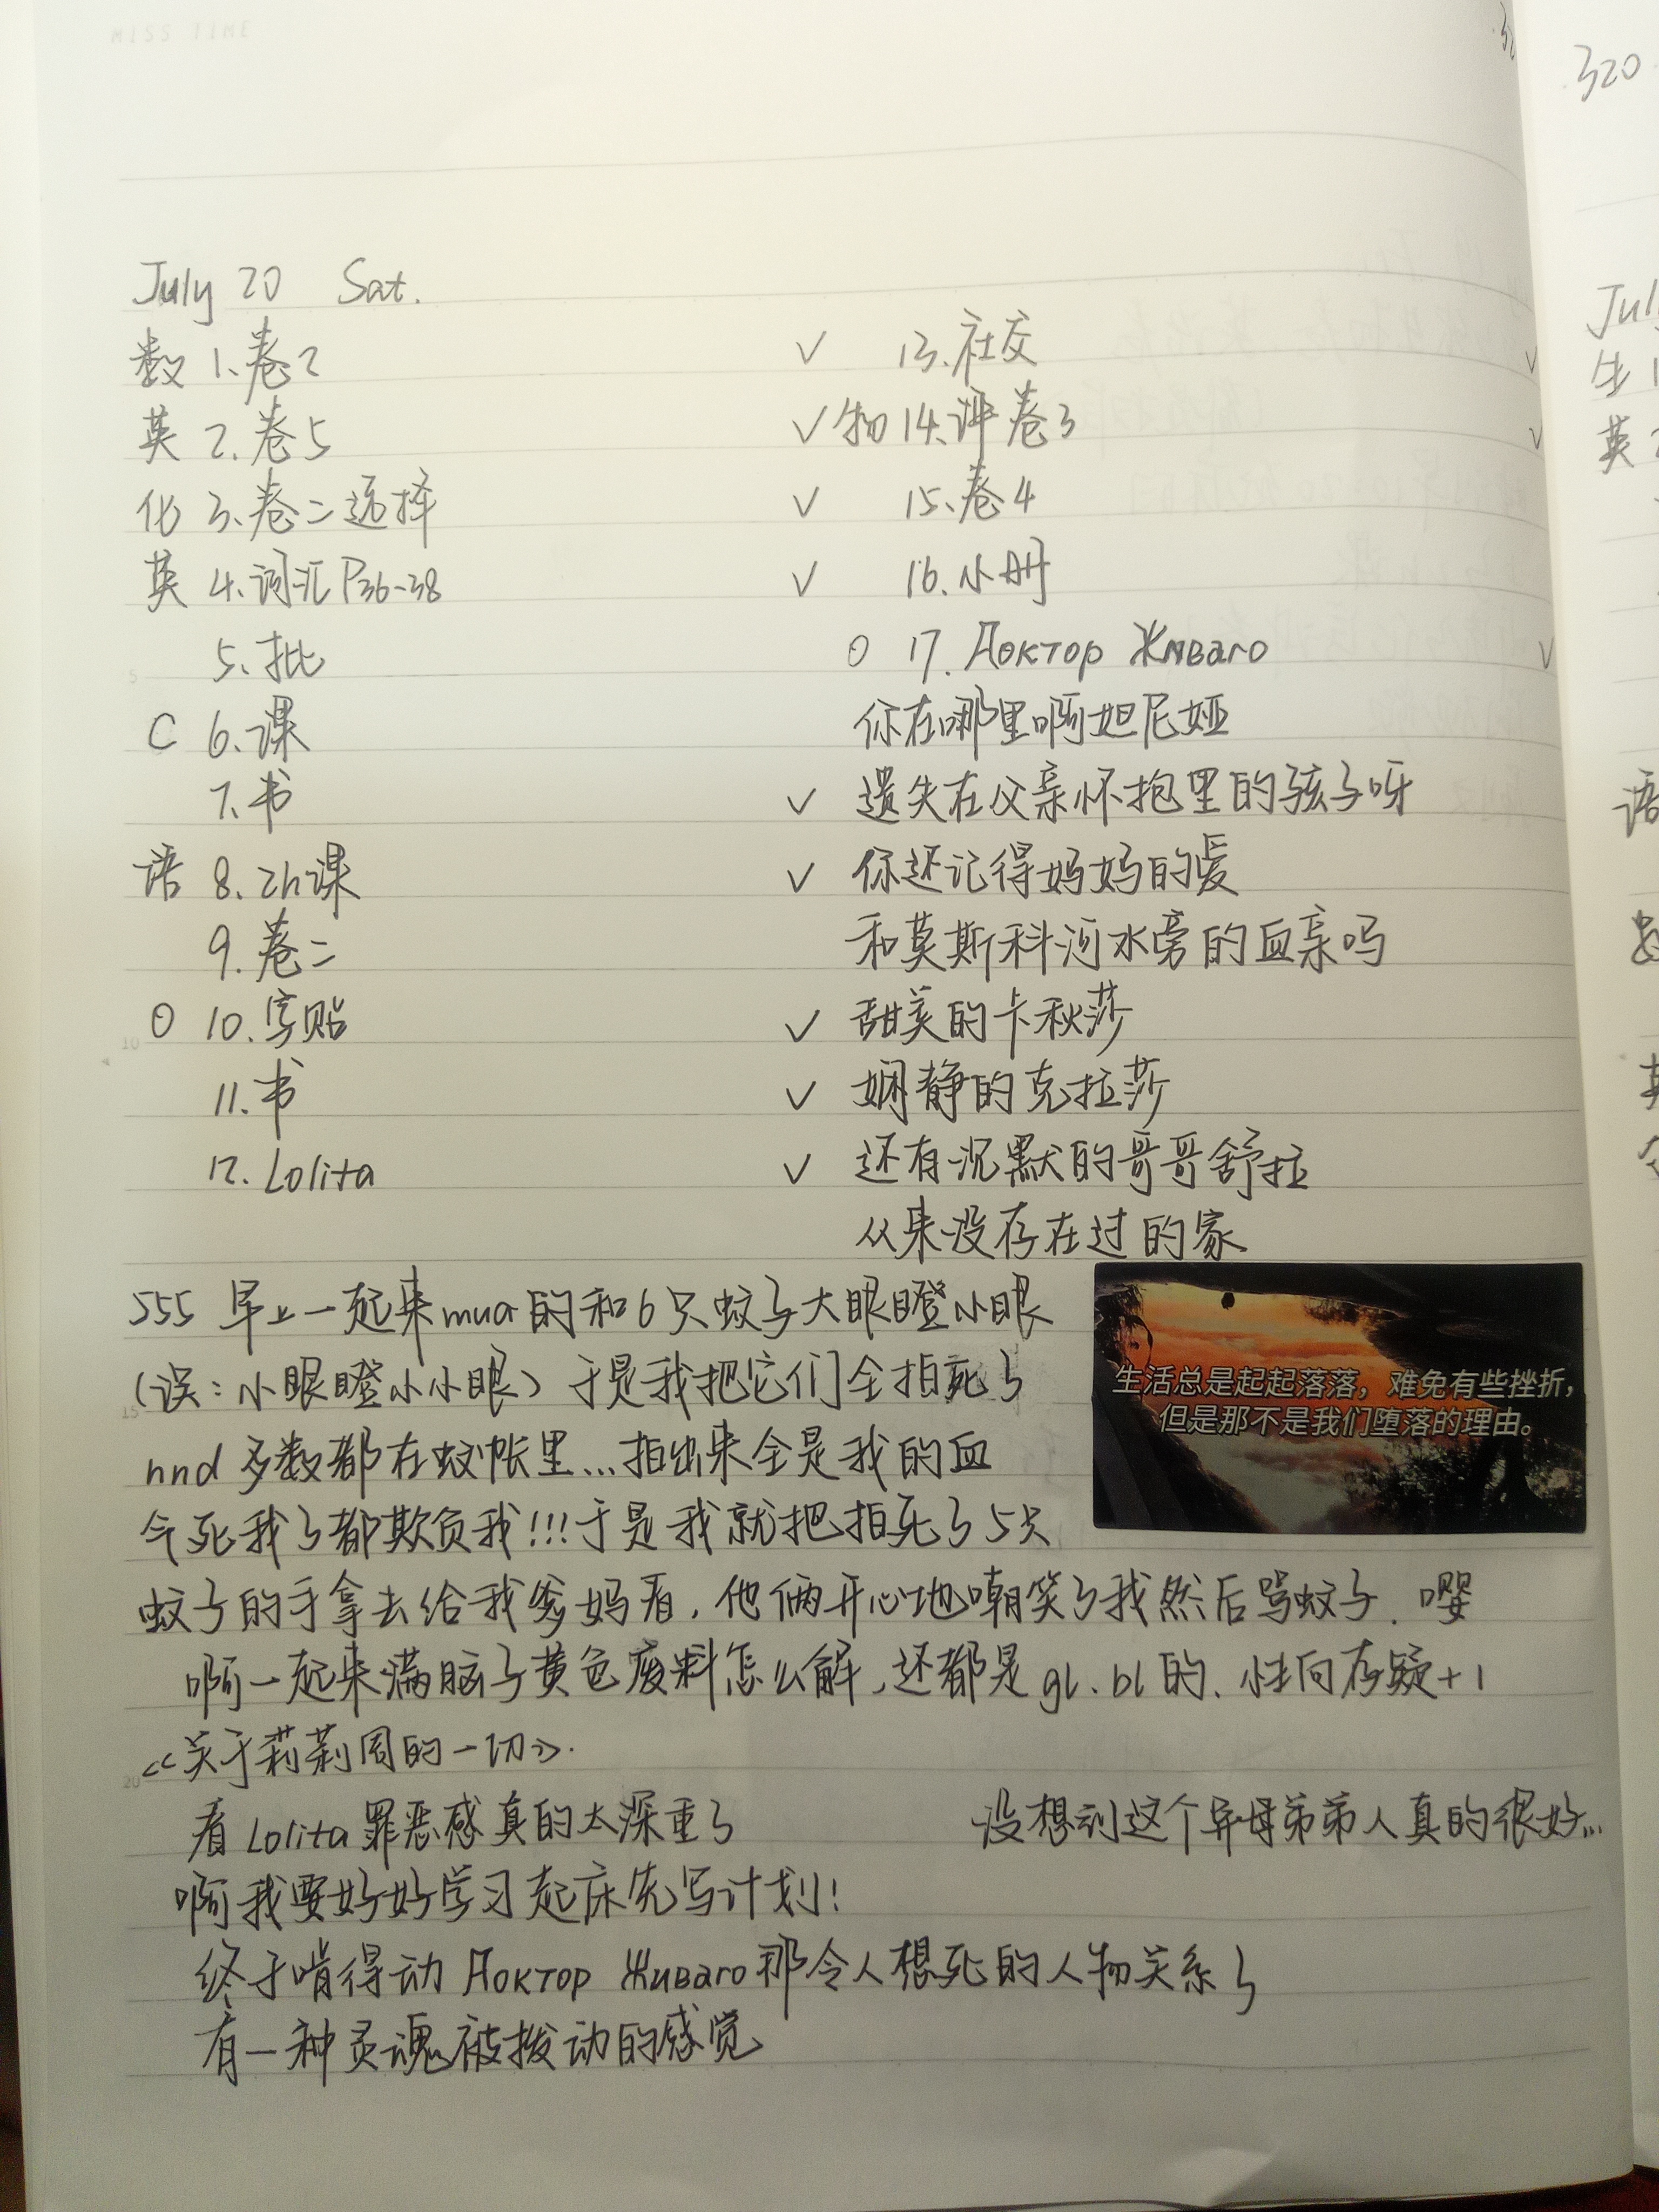 MISS TIME
July 20 Sat.
数 1、卷2 ✓
英 2、卷5 ✓
化 3、卷二选择 ✓
英 4、词汇P36-38 ✓
5、批
C 6、课
7、书 ✓
语 8、zh课 ✓
9、卷二
O 10、字贴 ✓
11、书 ✓
12、Lolita ✓
13、社交
物 14、评卷3
15、卷4
16、小册
O 17、Доктор Живаго
你在哪里啊妲尼娅
遗失在父亲怀抱里的孩子呀
你还记得妈妈的爱
和莫斯科河水旁的血亲吗
甜美的卡秋莎
娴静的克拉莎
还有沉默的哥哥舒拉
从来没存在过的家
555 早上一起来mua的和6只蚊子大眼瞪小眼
(误：小眼瞪小小眼) 于是我把它们全拍死了
nnd 多数都在蚊帐里...拍出来全是我的血
气死我了都欺负我!!!于是我就把拍死了5只
蚊子的手拿去给我爹妈看，他俩开心地嘲笑了我然后骂蚊子．嘤
生活总是起起落落，难免有些挫折，
但是那不是我们堕落的理由。
啊一起来满脑子黄色废料怎么解，还都是gl、bl的、性向存疑+1
《关于莉莉周的一切》.
看Lolita罪恶感真的太深重了 没想到这个异母弟弟人真的很好...
啊我要好好学习起床先写计划!
终于啃得动 Доктор Живаго 那令人想死的人物关系了
有一种灵魂被拨动的感觉
320
July
生 1
英 2
语
5
10
15
20